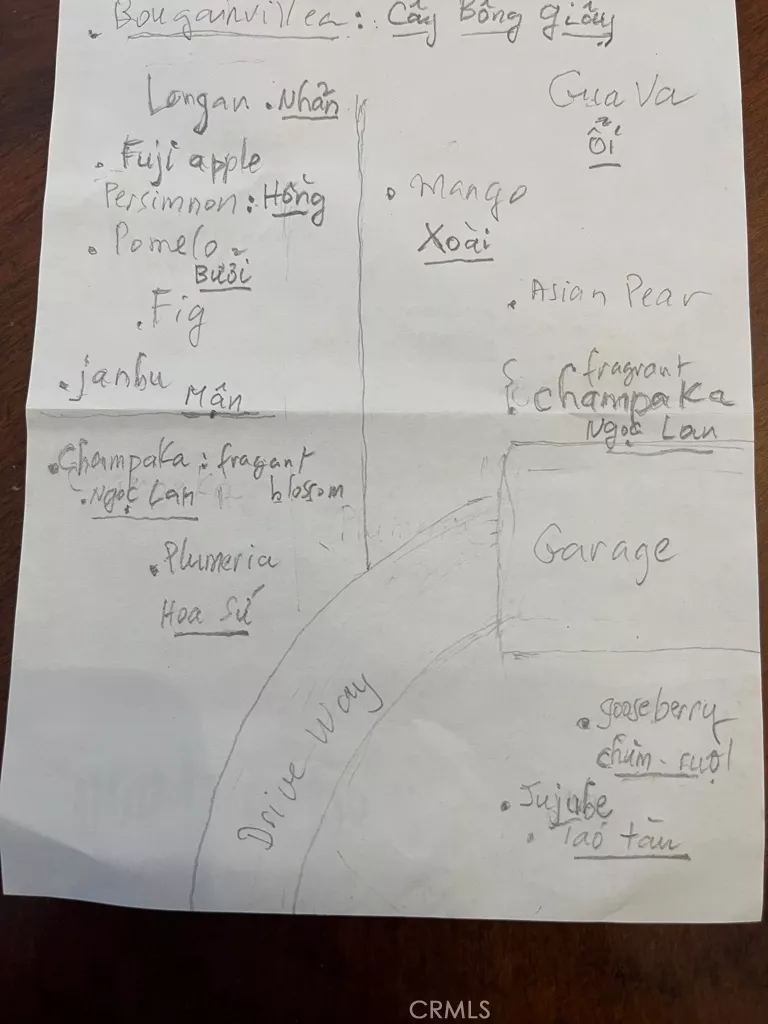 Bougainvillea: Cây Bông giấy
Longan . Nhãn
Fuji apple
Persimnon: Hồng
Pomelo
Bưởi
Fig
janbu
Mận
Champaka: fragant
blossom
Ngọc Lan
Plumeria
Hoa Sứ
Guava
Ổi
Mango
Xoài
Asian Pear
fragrant
Champaka
Ngọc Lan
Garage
Drive Way
gooseberry
chùm-ruột
Jujube
Táo tàu
CRMLS